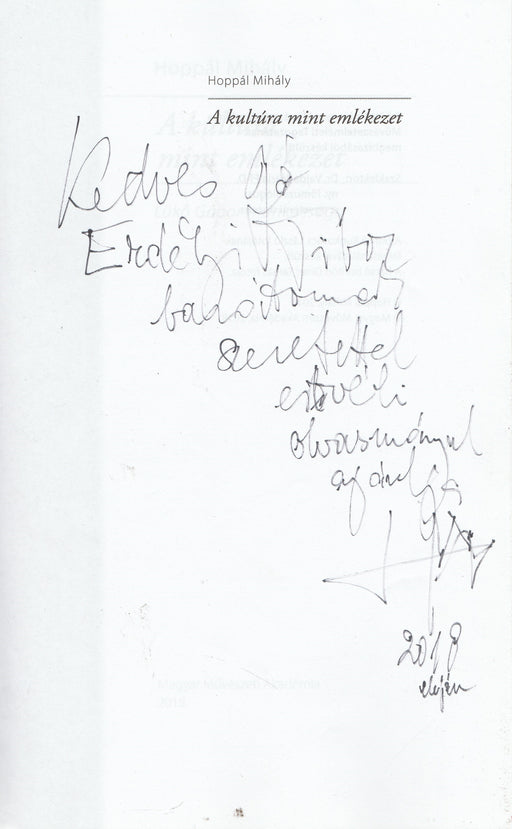 Hoppál Mihály
A kultúra mint emlékezet
Kedves Jó
Erdélyi
barátomnak
szeretettel
estvéli
olvasmányul
ajánlja
2018
elején
Magyar Művészeti Akadémia